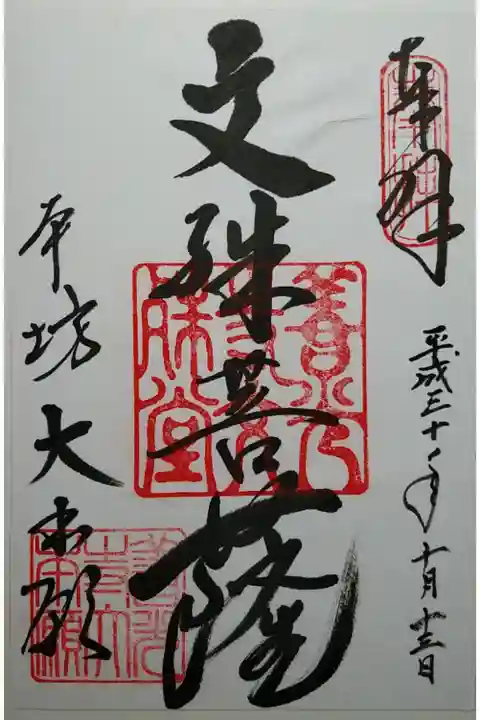 奉拝
平成三十年十月十三日
文殊菩薩
本坊 大本願